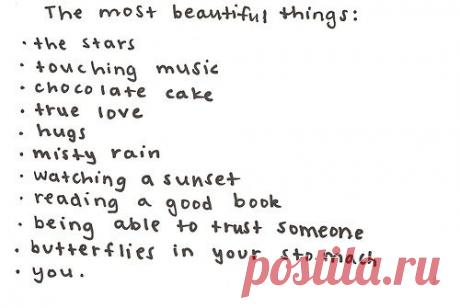 The most beautiful things:
· the stars
· touching music
· chocolate cake
· true love
· hugs
· misty rain
· watching a sunset
· reading a good book
· being able to trust someone
· butterflies in your stomach
· you.
postila.ru